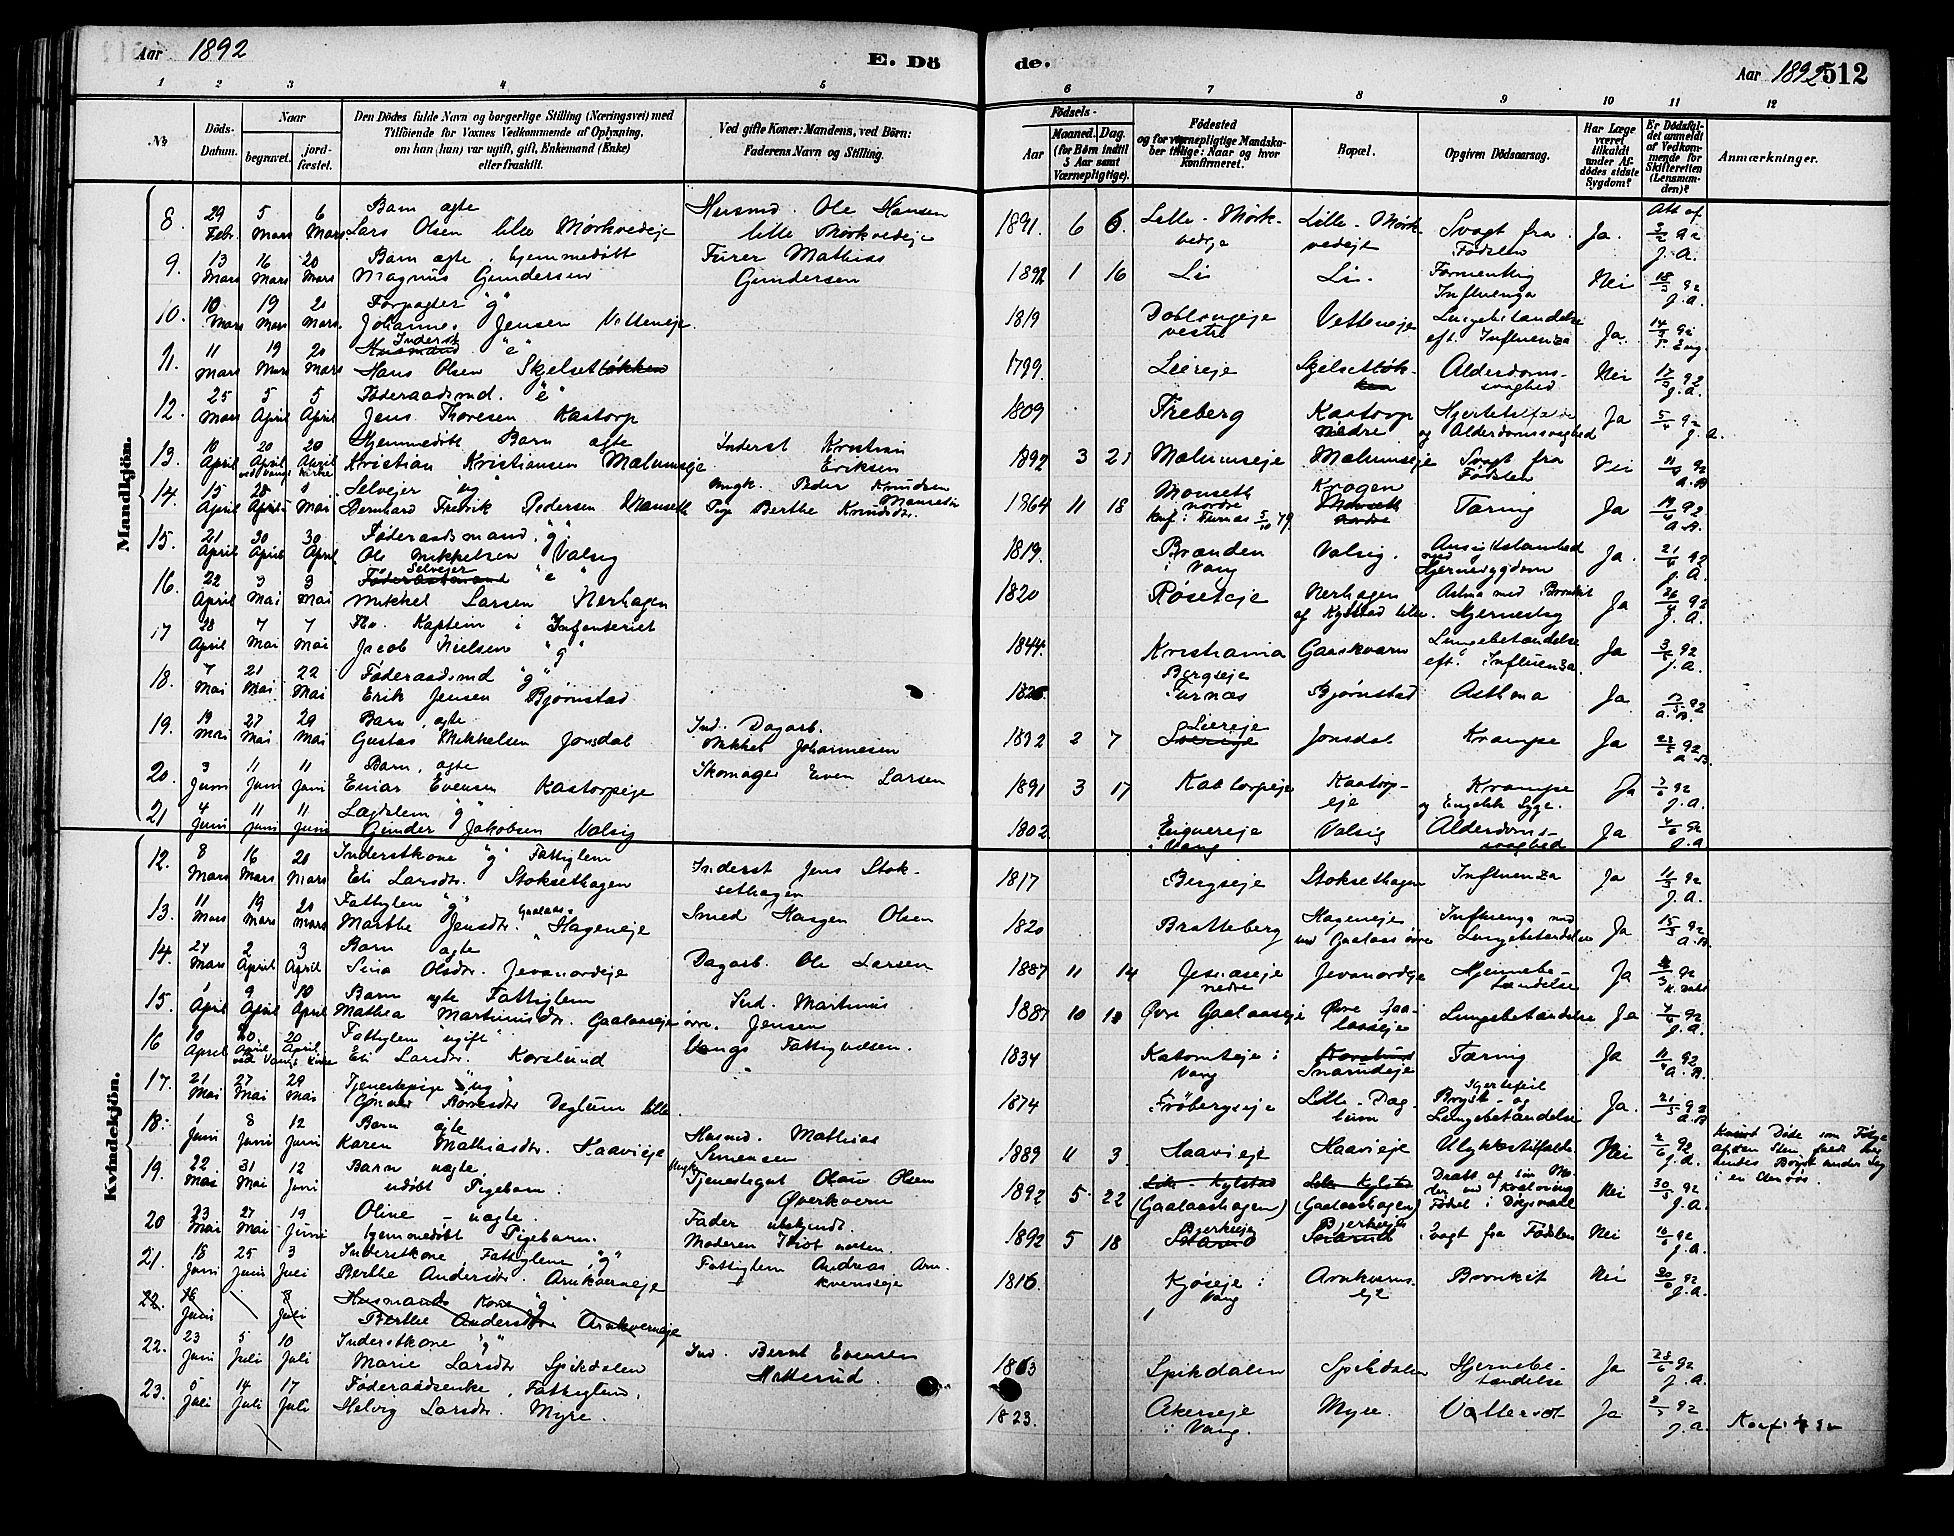 Aar 1892
E. Dö
de.
Aar 1892
512
1 2 3 4 5 6 7 8 9 10 11 12
No
Döds-Datum.
Naar
begravet.
jordfæstet.
Den Dödes fulde Navn og borgerlige Stilling (Næringsvei) med
Tilföiende for Voxnes Vedkommende af Oplysning,
om han (hun) var ugift, gift, Enkemand (Enke)
eller fraskilt.
Ved gifte Koner: Mandens, ved Börn:
Faderens Navn og Stilling.
Födsels-
Aar
Maaned. Dag.
(for Börn indtil
5 Aar samt
Værnepligtige).
Födested
og for værnepligtige Mandska-
ber tillige: Naar og hvor
konfirmeret.
Bopæl.
Opgiven Dödsaarsag.
Har Læge
været
tilkaldt
under Af-
dödes sidste
Sygdom?
Er Dödsfal-
det anmeldt
af Vedkom-
mende for
Skifteretten
(Lensman-
den)?
Anmærkninger.
Mandkjön.
8. 29 Febr. 5 Mars 6 Mars. Barn ægte Lars Olsen lille Mørkvedeje Husmd. Ole Hansen lille Mørkvedeje 1891. 6 6. Lille-Mørkvedeje Lille-Mørkvedeje Svagt fra Fødselen Ja.
9. 13 Mars 16 Mars 20 Mars Barn ægte, hjemmedøbt Magnus Gundersen Furer Mathias Gundersen 1892 1 16 Li Li. Formentlig Influenza Nei 18/3 92 J.A.
10. 10 Mars 19 Mars 20 Mars. Forpagter "g" Johannes Jensen Vetteneje. 1819 vestre Vetteneje Lungebetændelse eft. Influenza Ja. 14/3 92
11. 11 Mars 19 Mars 20 Mars Inderst Husmand "e" Hans Olsen Skjelsetløkken 1799. Liereje Skjelsetløkken Alderdomssvaghed Nei 17/3 92 J.A.
12. 25 Mars 5 April 5 April Føderaadsmd. "e" Jens Thoresen Kastorp 1809 Freberg Kastorp nedre og Alderdomssvaghed Ja 5/4 92 J.A.
13. 10 April 20 April ved Vangs Kirke 20 April Hjemmedøbt Barn ægte Kristian Kristiansen Mælumseje Inderst Kristian Eriksen 1892 3 21 Mælumseje Mælumseje Svagt fra Fødselen Nei 11/4 92 A.B.
14. 15 April 28 April 1 Mai Selvejer "ug" Bernhard Fredrik Pedersen Manseth Ungk. Peder Knudsen Pige Berthe Knudsdr. 1864 11 18 Manseth nordre konf. i Furnæs 5/10 79 Krogen Manseth nordre Tæring Ja 19/4 92 A.B.
15. 21 April 30 April 30 April Føderaadsmand "g" Ole Mikkelsen Valsig 1819. Brænden i Vang Valsig. Hjernesygdom Ja. 21/4 92 J.A.
16. 22 April 3 Mai 3 Mai Selvejer "e" Mikkel Larsen Nerhagen 1820 Røseteje Nerhagen af Kylstad lille. Astma med Bronkit Hjerneslag Ja 26/4 92 J.A.
17 28 April 7 Mai 7 Mai Fhv. Kaptein i Infanteriet Jacob Nielsen "g" 1844. Kristiania Gaaskvarn Lungebetændelse eft. Influenza Ja 3/5 92 J.A.
18. 7 Mai 21 Mai 22 Mai Føderaadsmd "g" Erik Jensen Bjørnstad Bergseje Furnæs Bjørnstad Asthma Ja 92 A.B.
19. 19 Mai 27 Mai 29 Mai Barn, ægte Gustav Mikkelsen Jonsdal Ind. Dagarb. Mikkel Johannesen 1892 2 7 Liereje Jonsdal Krampe Ja 23/5 92 A.B.
20. 3 Juni 11 Juni 11 Juni Barn, ægte Einar Evensen Kastorpeje Skomager Even Larsen 1891 3 17 Kastorpeje Kastorpeje Krampe og Engelsk Syge. Ja 7/6 92 J.A.
21 4 Juni 11 Juni 11 Juni Lægdslem "g" Gunder Jakobsen Valsig 1802 i Vang Valsig Alderdomssvaghed Ja 7/6 92 J.A.
Kvindekjön.
12. 8 Mars 16 Mars 20 Mars Inderstkone "g" Fattiglem Eli Larsdr. Stoksethagen Inderst Jens Stoksethagen 1817 Bergseje Stoksethagen Influenza Ja 11/3 92 J.A.
13. 11 Mars 19 Mars 20 Mars Fattiglem "g" Marthe Jensdr. Gaalaas-Hageneje Smed Hagen Olsen 1820 Bratteberg Hageneje ved Gaalaas øvre Influenza med Lungebetændelse Ja 15/3 92 A.B.
14. 24 Mars 2 April 3 April Barn ægte Sina Olsdr. Jevanordeje Dagarb. Ole Larsen 1887 11 14 Jesnæseje nedre Jevanordeje Hjernebetændelse Ja
15. 1 April 9 April 10 April Barn ægte Fattiglem Mathea Martinusdr. Gaalaaseje øvre. Ind. Martinus Jensen 1887 10 10 Øvre Gaalaaseje Øvre Gaalaaseje Lungebetændelse Ja 7/4 92 J.A.
16 10 April 20 April ved Vangs Kirke 20 April Fattiglem "ugift" Eli Larsdr. Korslund Vangs Fattigvæsen. 1834 Vang Korslund Snarudeje Tæring Ja 11/4 92 A.B.
17. 21 Mai 27 Mai 29 Mai Tjenestepige "ug" Daglum lille 1874 Frøbergseje Lille-Daglum Hjertefeil Bryst- og Lungebetændelse Ja. 21/5 92 A.B.
18. 1 Juni 8 Juni 12 Juni Barn ægte Karen Mathiasdr. Haavieje Husmd. Mathias Simensen 1889 11 3. Haavieje Haavieje Ulykkestilfælde. Nei 2/6 92 J.A.
19. 22 Mai 31 Mai 12 Juni Barn uægte, udøbt Pigebarn. Ungk. Tjenestegut Olaus Olsen Øverkvern 1892 5. 22 Lille-Kylstad (Gaalaashagen) Lille Kylstad (Gaalaashagen) Dræbt af sin Moder ved Kvælning Fødsel i Dølgsmaal Nei 30/5 92 J.A.
20 23 Mai 27 Mai 19 Juni Oline - uægte. hjemmedøbt Pigebarn. Fader ubekjendt. Moderen Idiot 1892 5 18 Bjerkeeje Bjerkeeje Svagt fra Fødselen Nei 92 J.A.
21. 18 Juni 25 Juni 3 Juli Inderstkone Fattiglem "g" Berthe Andersdr. Arnkverneje Fattiglem Andreas Arnkvernseje 1816 Kjøseje i Vang Arnkvernseje Bronkit Nei 20/6 92 J.A.
22. 18 Juni 8 Juli Husmands Kone "g" Berthe Andersdr Arnkverneje
22. 23 Juni 5 Juli 10 Juli Inderstkone "g" Marie Larsdr Spikdalen Ind. Bernt Evensen Hatterud. 1863 Spikdalen Spikdalen Hjernebetændelse Ja 28/6 92 J.A.
23. 5 Juli 14 Juli 17 Juli Føderaadsenke, Fattiglem. Helvig Larsdr. Myre. 1823. Akerseje i Vang. Myre. Vattersot Ja 92 J.A.